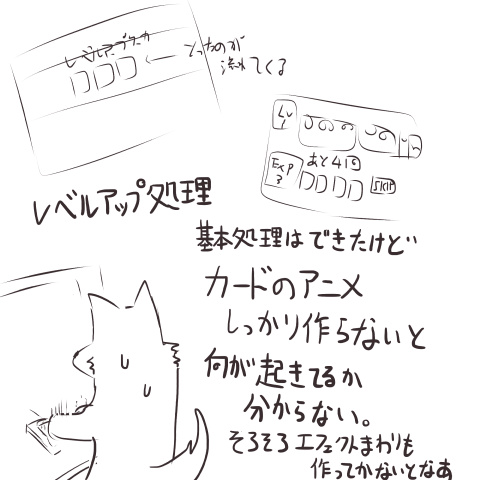 レベルアップ
とったのが
流れてくる
Lv
1
Exp
3
あと4回
SKIP
レベルアップ処理
基本処理はできたけど
カードのアニメ
しっかり作らないと
何が起きてるか
分からない。
そろそろエフェクトまわりも
作ってかないとなあ